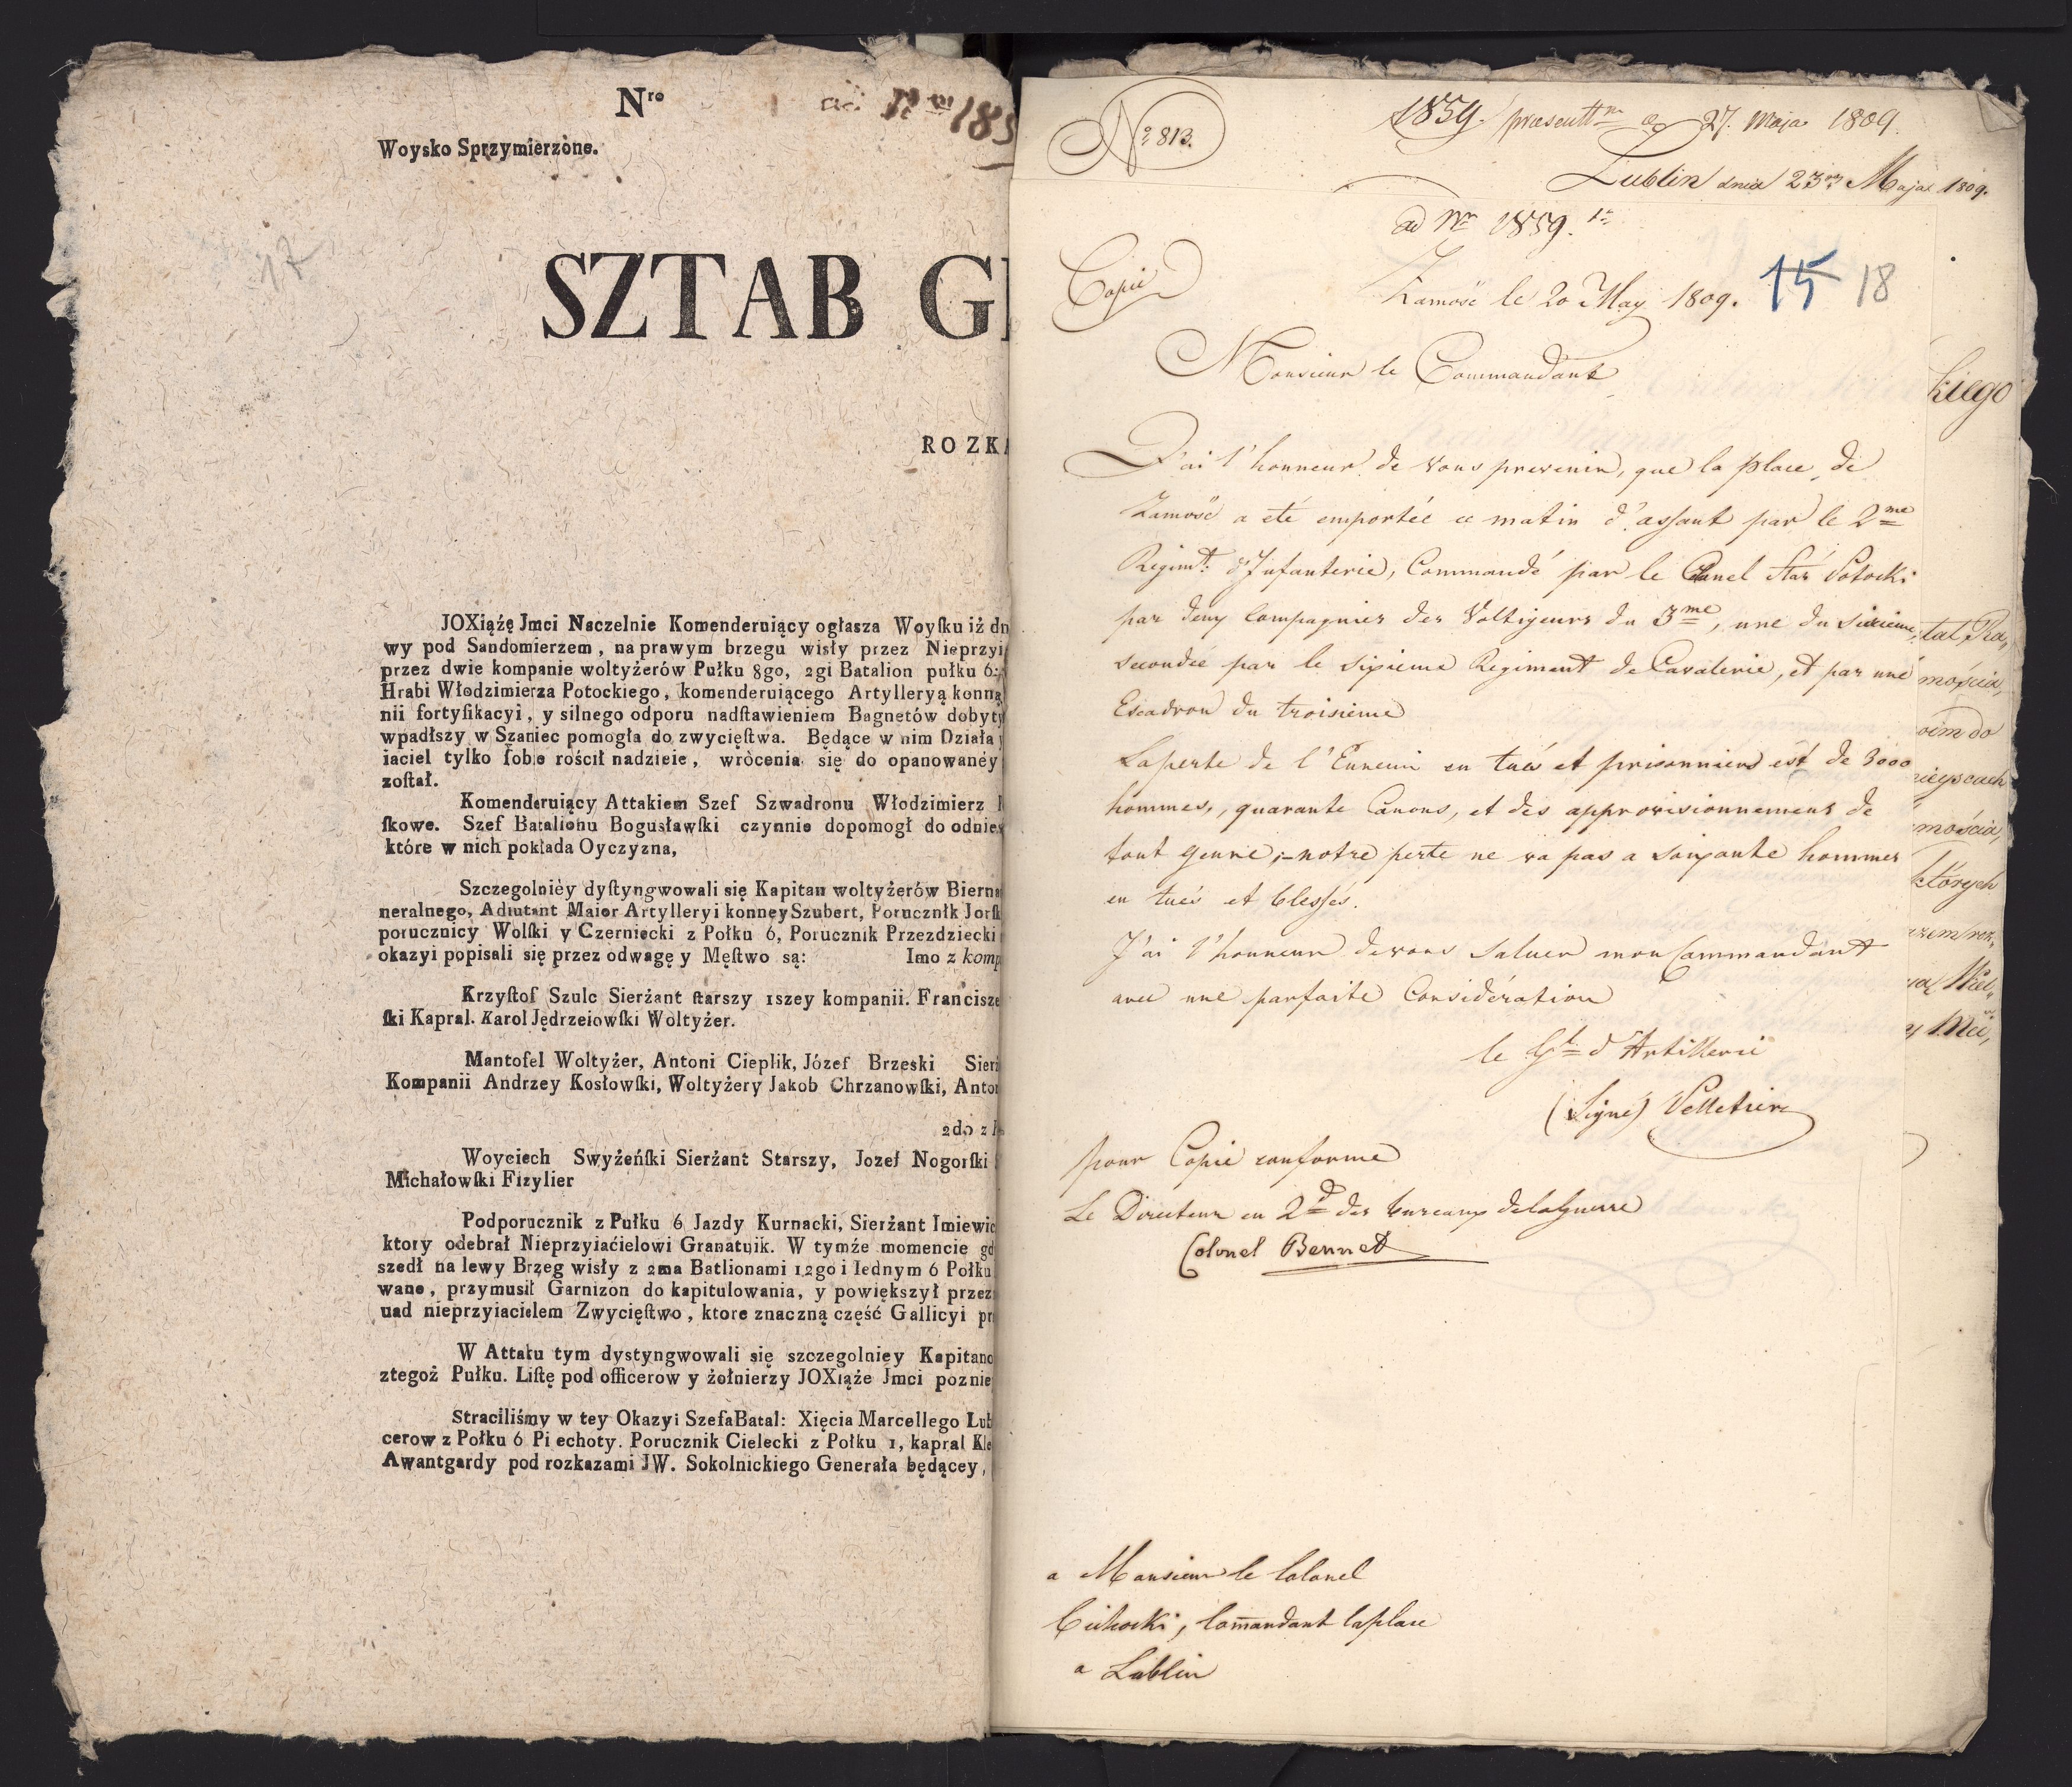 Nro
ad Nrm 185
Woysko Sprzymierzone.
17
SZTAB GE
ROZKA
JOXiążę Jmci Naczelnie Komenderuiący ogłasza Woyſku iż dn
wy pod Sandomierzem, na prawym brzegu wisły przez Nieprzyi
przez dwie kompanie woltyżerów Pułku 8go, 2gi Batalion pułku 6
Hrabi Włodzimierza Potockiego, komenderuiącego Artylleryą konną
nii fortyfikacyi, y silnego odporu nadſtawieniem Bagnetów dobyty
wpadłszy w Szaniec pomogła do zwycięſtwa. Będące w nim Działa
iaciel tylko ſobie rościł nadzieie, wròcenia się do opanowanéy
zoſtał.
Komenderuiący Attakiem Szef Szwadronu Włodzimierz
ſkowe. Szef Batalionu Bogusławſki czynnie dopomogł do odnie
które w nich pokłada Oyczyzna,
Szczegolniéy dyſtyngwowali się Kapitan woltyżerów Bierna
neralnego, Adiutant Maior Artylleryi konney Szubert, Porucznik Jorſk
porucznicy Wolſki y Czerniecki z Połku 6, Porucznik Przezdziecki
okazyi popisali się przez odwagę y Męſtwo są: Imo z komp
Krzyſtof Szulc Sierżant ſtarszy 1szey kompanii. Francisze
ſki Kapral. Karol Jędrzeiowſki Woltyżer.
Mantofel Woltyżer, Antoni Cieplik, Józef Brzeski Sierż
Kompanii Andrzey Kosłowſki, Woltyżery Jakob Chrzanowſki, Anton
2do z k
Woyciech Swyżeńſki Sierżant Starszy, Jozef Nogorſki
Michałowſki Fizylier
Podporucznik z Pułku 6 Jazdy Kurnacki, Sierżant Imiewic
ktory odebrał Nieprzyiaćielowi Granatnik. W tymże momencie gd
szedł na lewy Brzeg wisły z 2ma Batlionami 12go i Iednym 6 Połku
wane, przymusił Garnizon do kapitulowania, y powiększył przez
nad nieprzyiacielem Zwycięſtwo, ktore znaczną część Gallicyi pr
W Attaku tym dystyngwowali się szczegolniey Kapitano
ztegoż Pułku. Liſtę pod officerow y żołnierzy JOXiąże Jmci poznie
Straciliśmy w tey Okazyi Szefa Batal: Xięcia Marcellego Lub
cerow z Połku 6 Pi echoty. Porucznik Cielecki z Połku 1, kapral Kle
Awantgardy pod rozkazami JW. Sokolnickiego Generała będącey,
No 813.
1859. præsentt m 27. Maja 1809.
Lublin dnia 23o Maja 1809.
ad Nr 1859.
Copie
Zamość le 20 May 1809.
15 18
Monsieur le Commandant
J'ai l'honneur de vous prevenir, que la place de
Zamość a eté emportée ce matin d'assaut par le 2me
Regimt: d'Infanterie, Commandé par le Colonel Potocki
par deux Compagnies des Voltigeurs du 3me, une du Sixieme,
secondée par le sixieme Regiment de Cavalerie, et par une
Escadron du troisieme
La perte de l'Ennemi en tués et prisonniers est de 3000
hommes, quarante Canons, et des approvisionnemens de
tout genre; notre perte ne va pas a soixante hommes
en tués et blessés.
J'ai l'honneur de vous saluer mon Commandant
avec une parfaite Considération
le Gl d'Artillerie
(Signé) Pelletier
pour Copie conforme
Le Directeur en 2d des bureaux de la Guerre
Colonel Bennet
a Monsieur le Colonel
Cichocki, Com̄andant la place
a Lublin
kiego
mościa,
oim do
mościa,
których